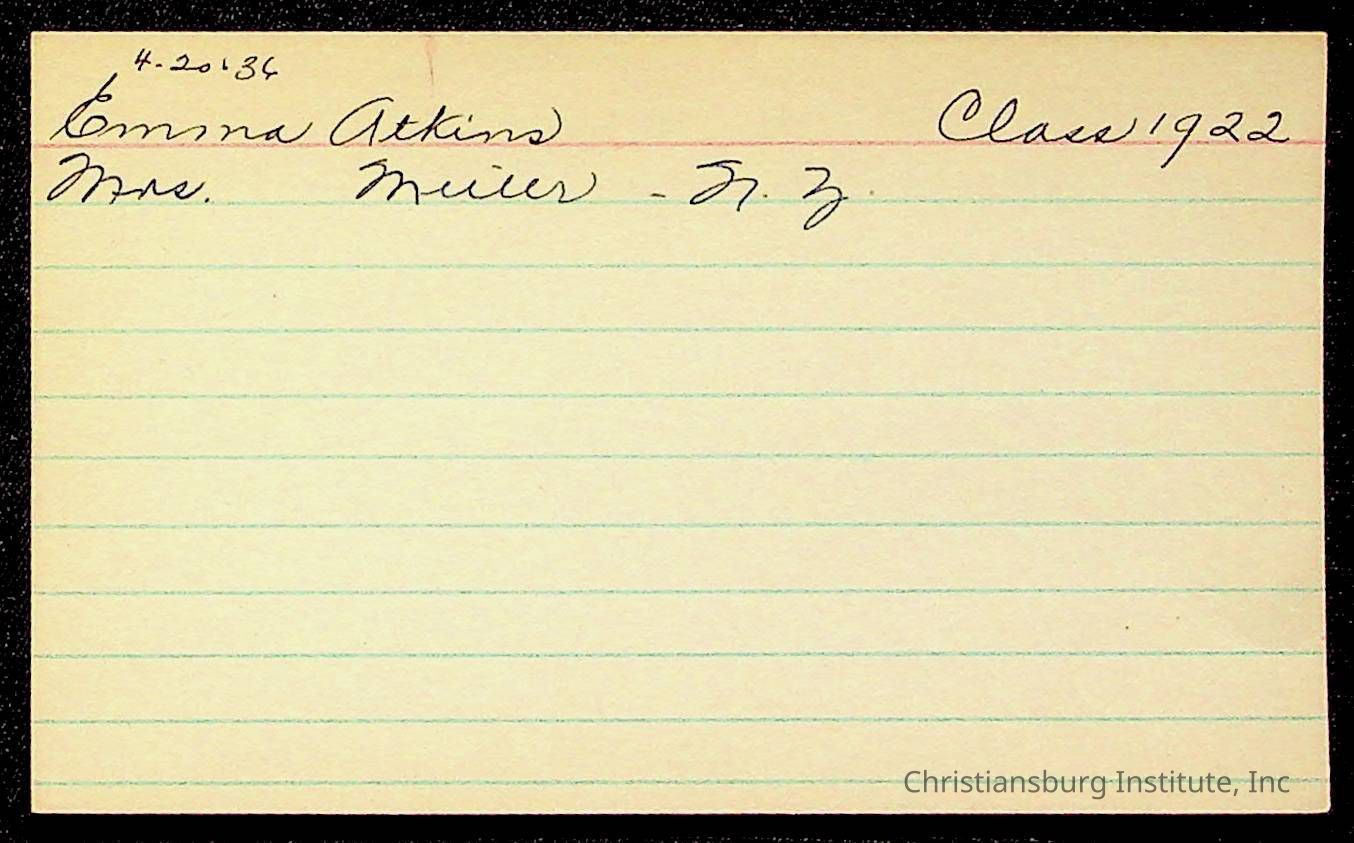 4-20-36
Emma Atkins Class 1922
Mrs. Miller - N. Y.
Christiansburg Institute, Inc